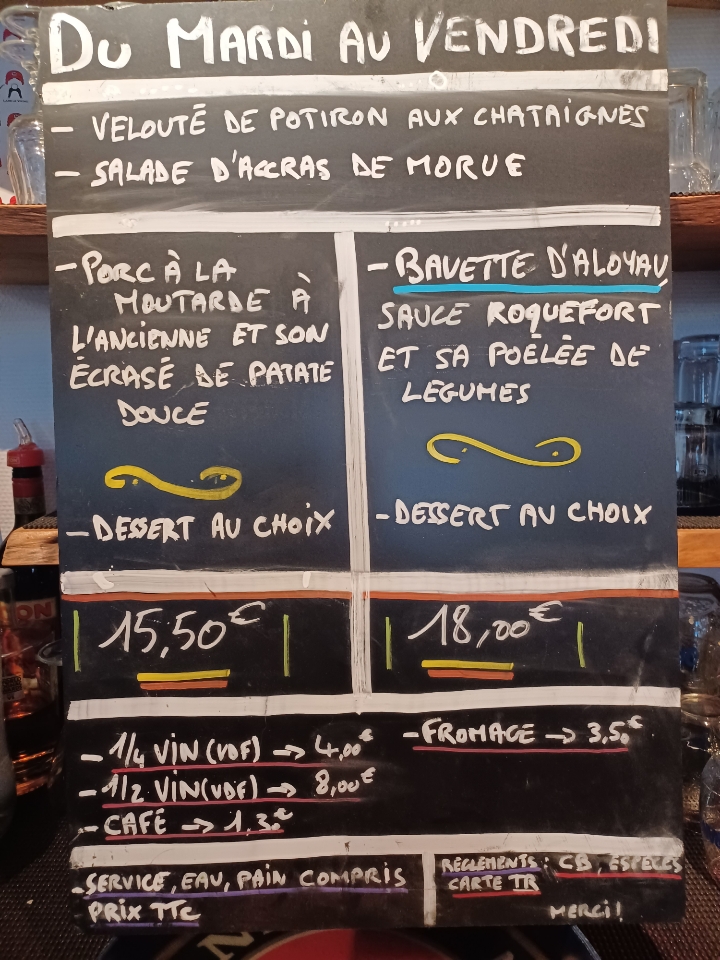 DU MARDI AU VENDREDI
- VELOUTÉ DE POTIRON AUX CHATAIGNES
- SALADE D'ACCRAS DE MORUE
- PORC À LA
MOUTARDE À
L'ANCIENNE ET SON
ÉCRASÉ DE PATATE
DOUCE
- DESSERT AU CHOIX
15,50€
- BAVETTE D'ALOYAU
SAUCE ROQUEFORT
ET SA POÊLÉE DE
LEGUMES
- DESSERT AU CHOIX
18,00€
- 1/4 VIN (VDF) → 4,00€
- 1/2 VIN (VDF) → 8,00€
- CAFÉ → 1,30€
- FROMAGE → 3,50€
- SERVICE, EAU, PAIN COMPRIS
PRIX TTC
RÈGLEMENTS : CB, ESPECES
CARTE TR
MERCI !